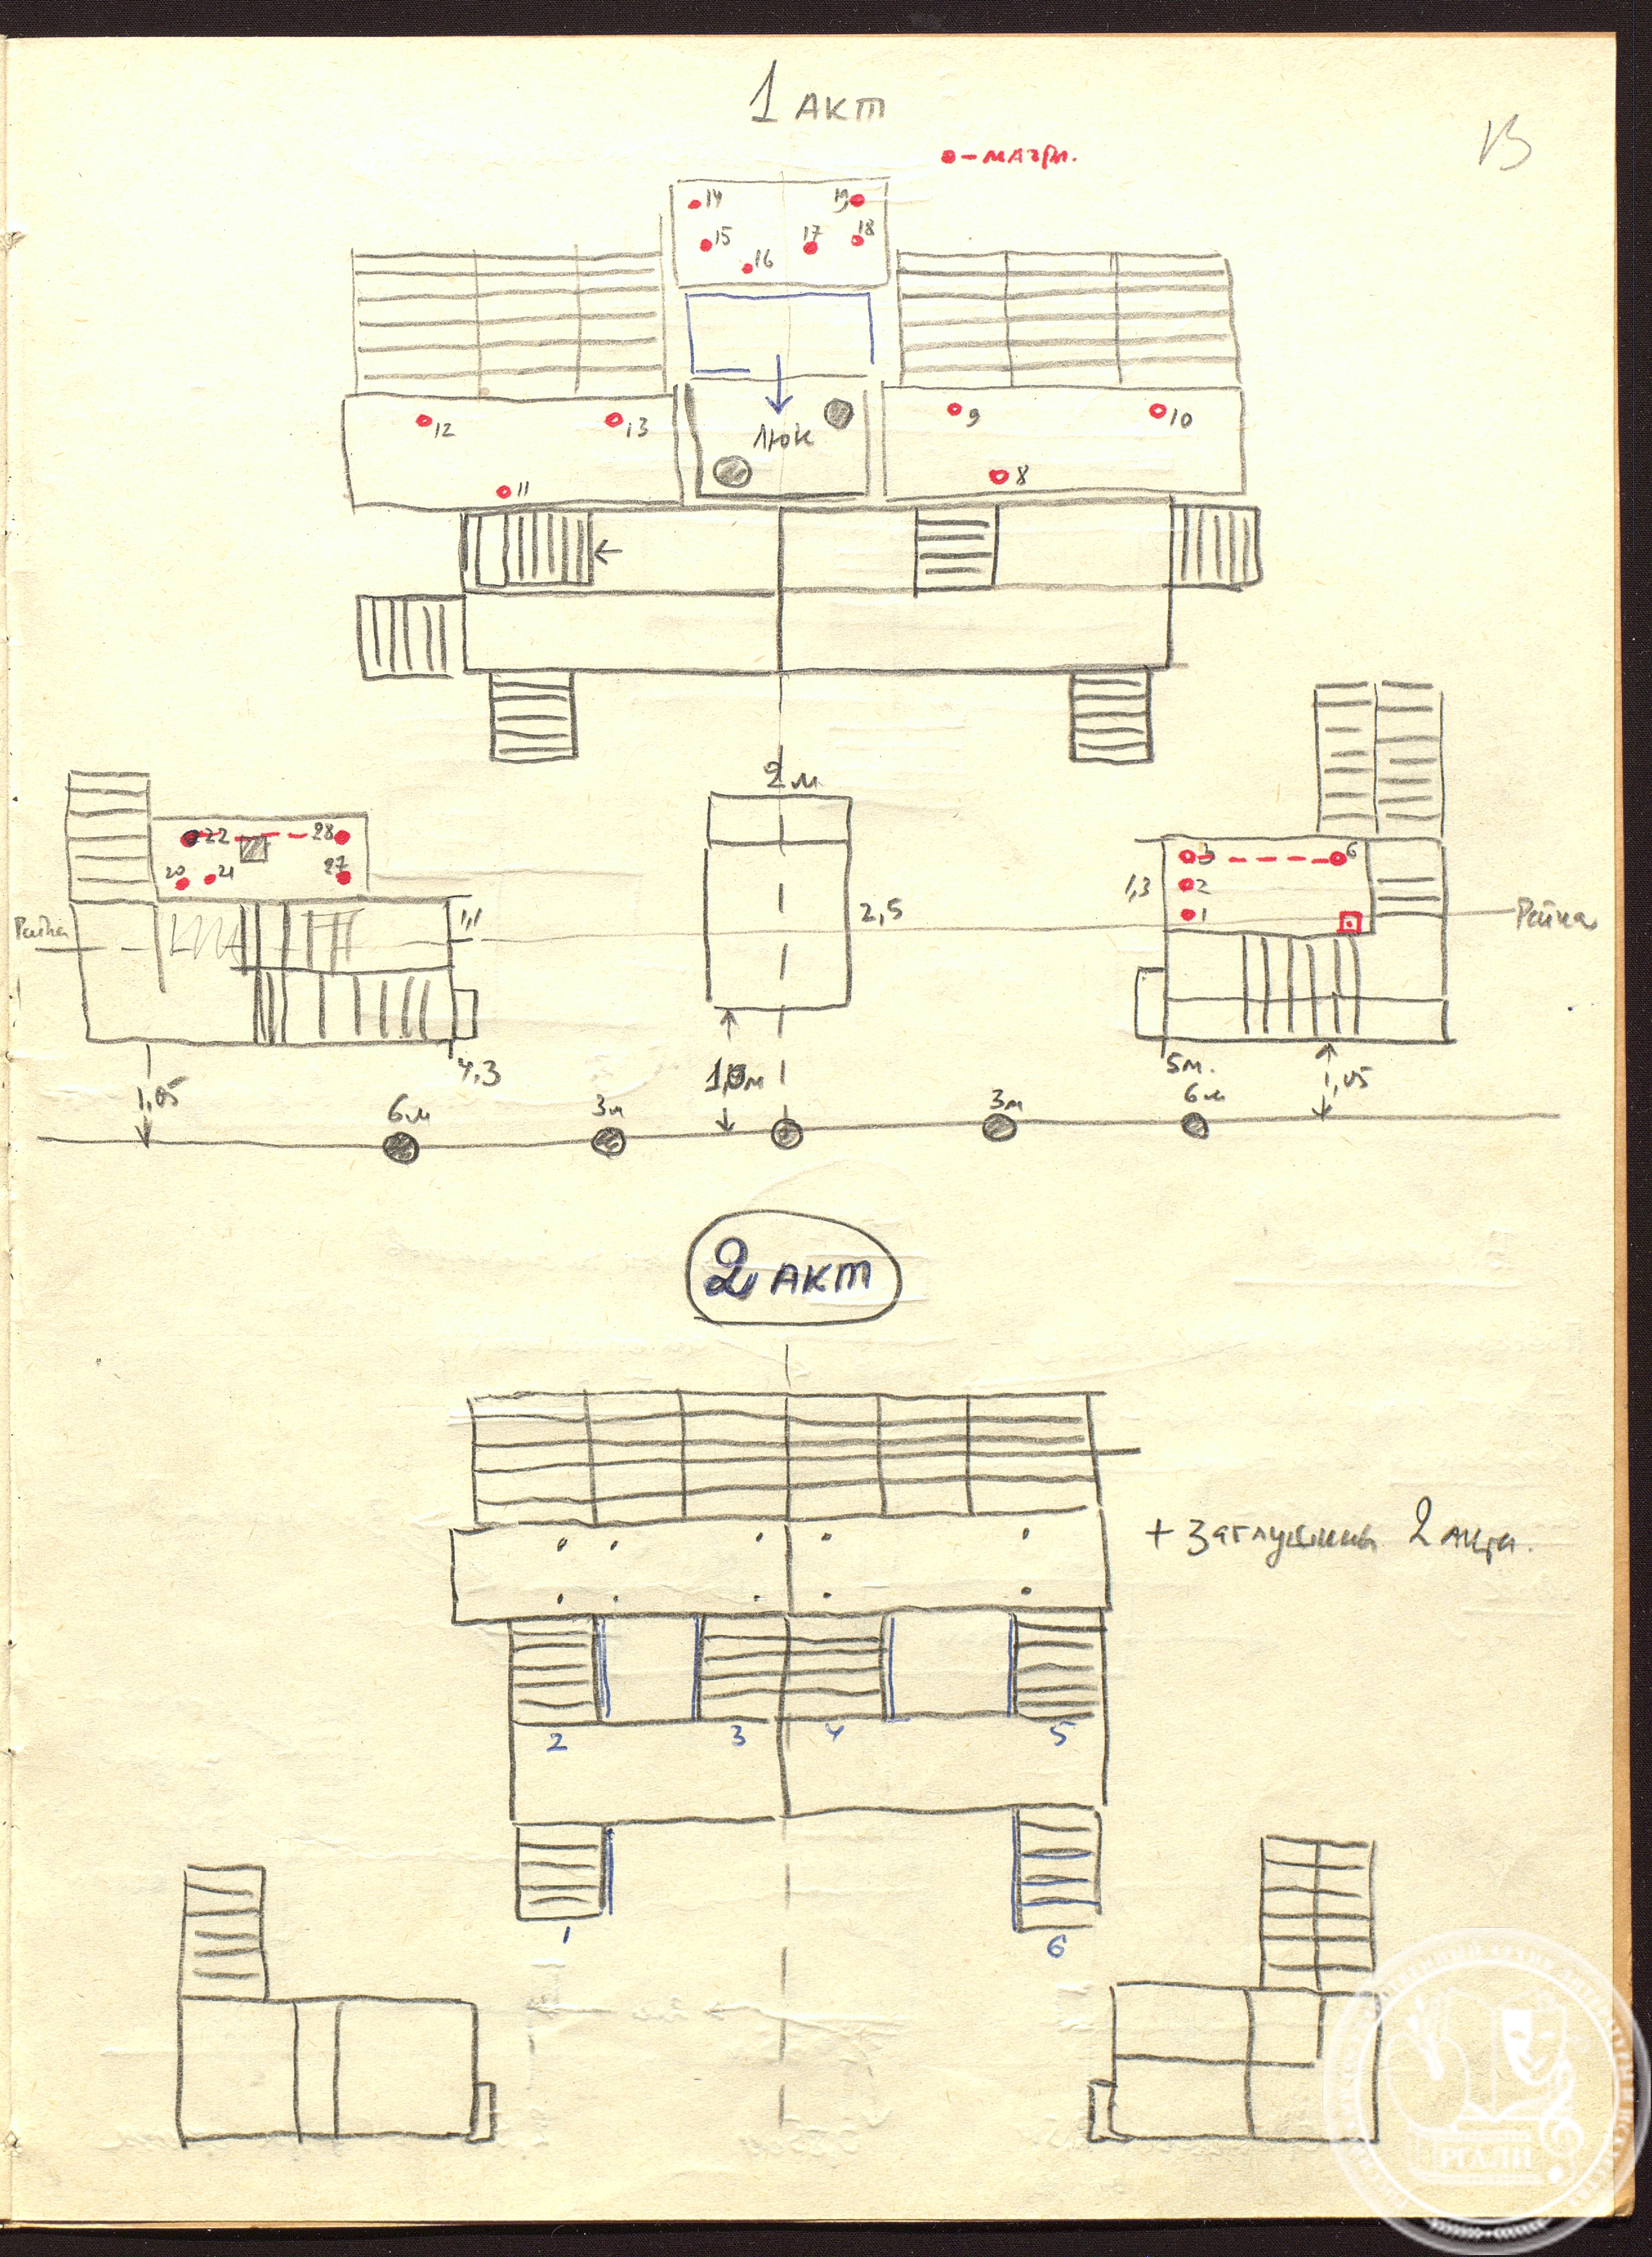 1 акт
13
14
19
15
17
18
16
12
13
9
10
люк
11
8
2 м
22
28
20
21
27
3
6
1,3
2
1
Райка
1,1
2,5
Райка
4,3
5 м.
1,05
1,05
6 м
3 м
3 м
6 м
2 акт
+ Заглушины 2 акта.
2
3
4
5
1
6
РГАЛИ